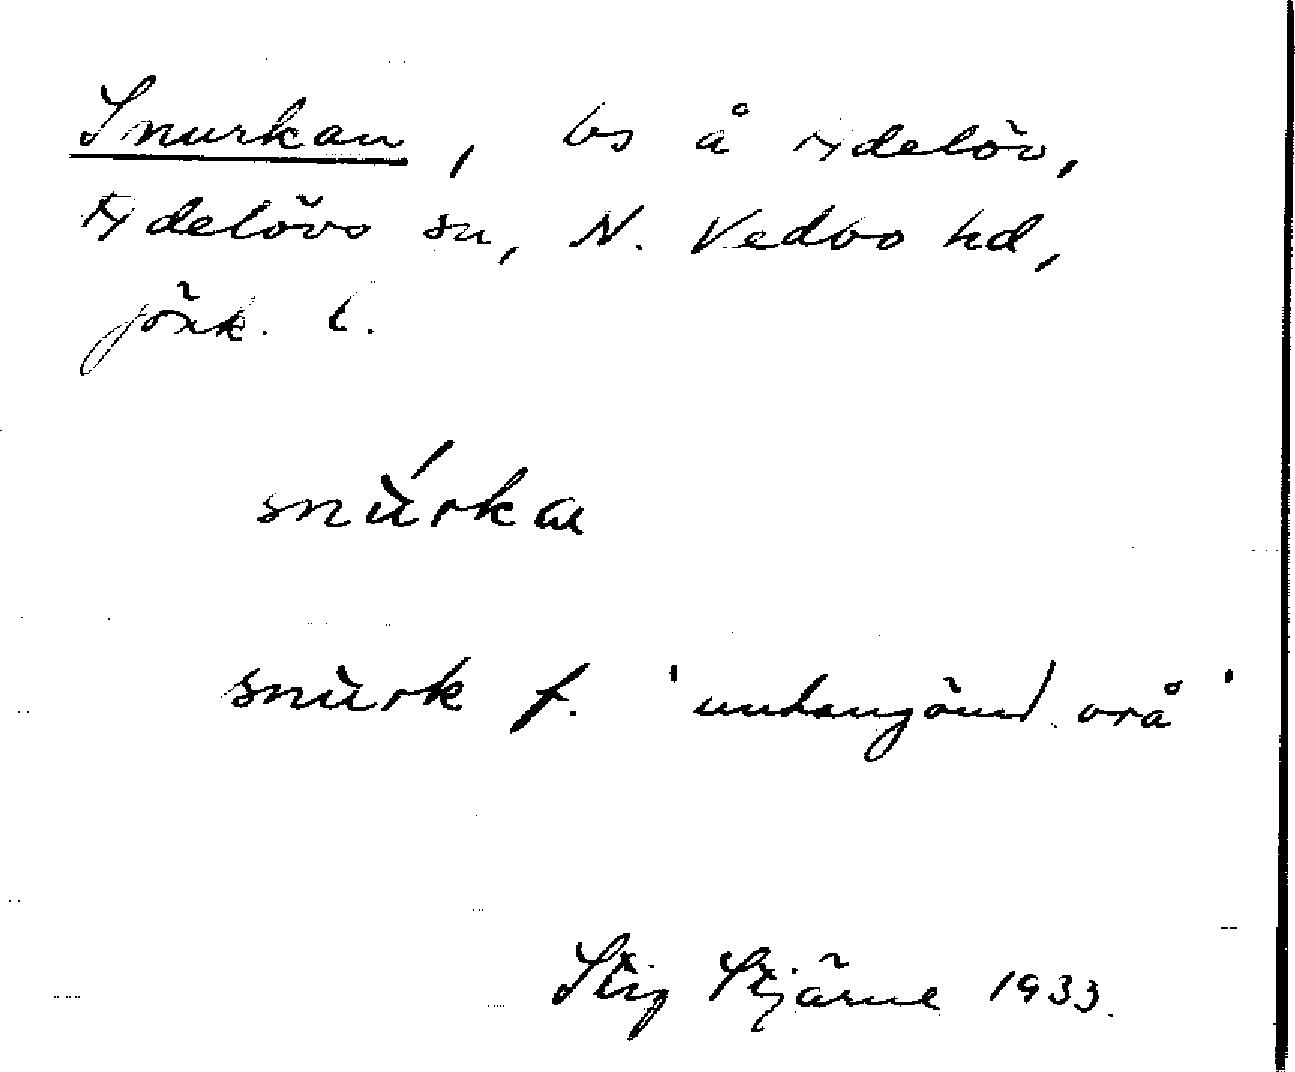 Snurkan, bs å Adelöv,
Adelövs sn, N. Vedbo hd,
Jönk. l.
snu̇́rka
snu̇rk f. ' undangömd vrå '
Stig Stjärne 1933.